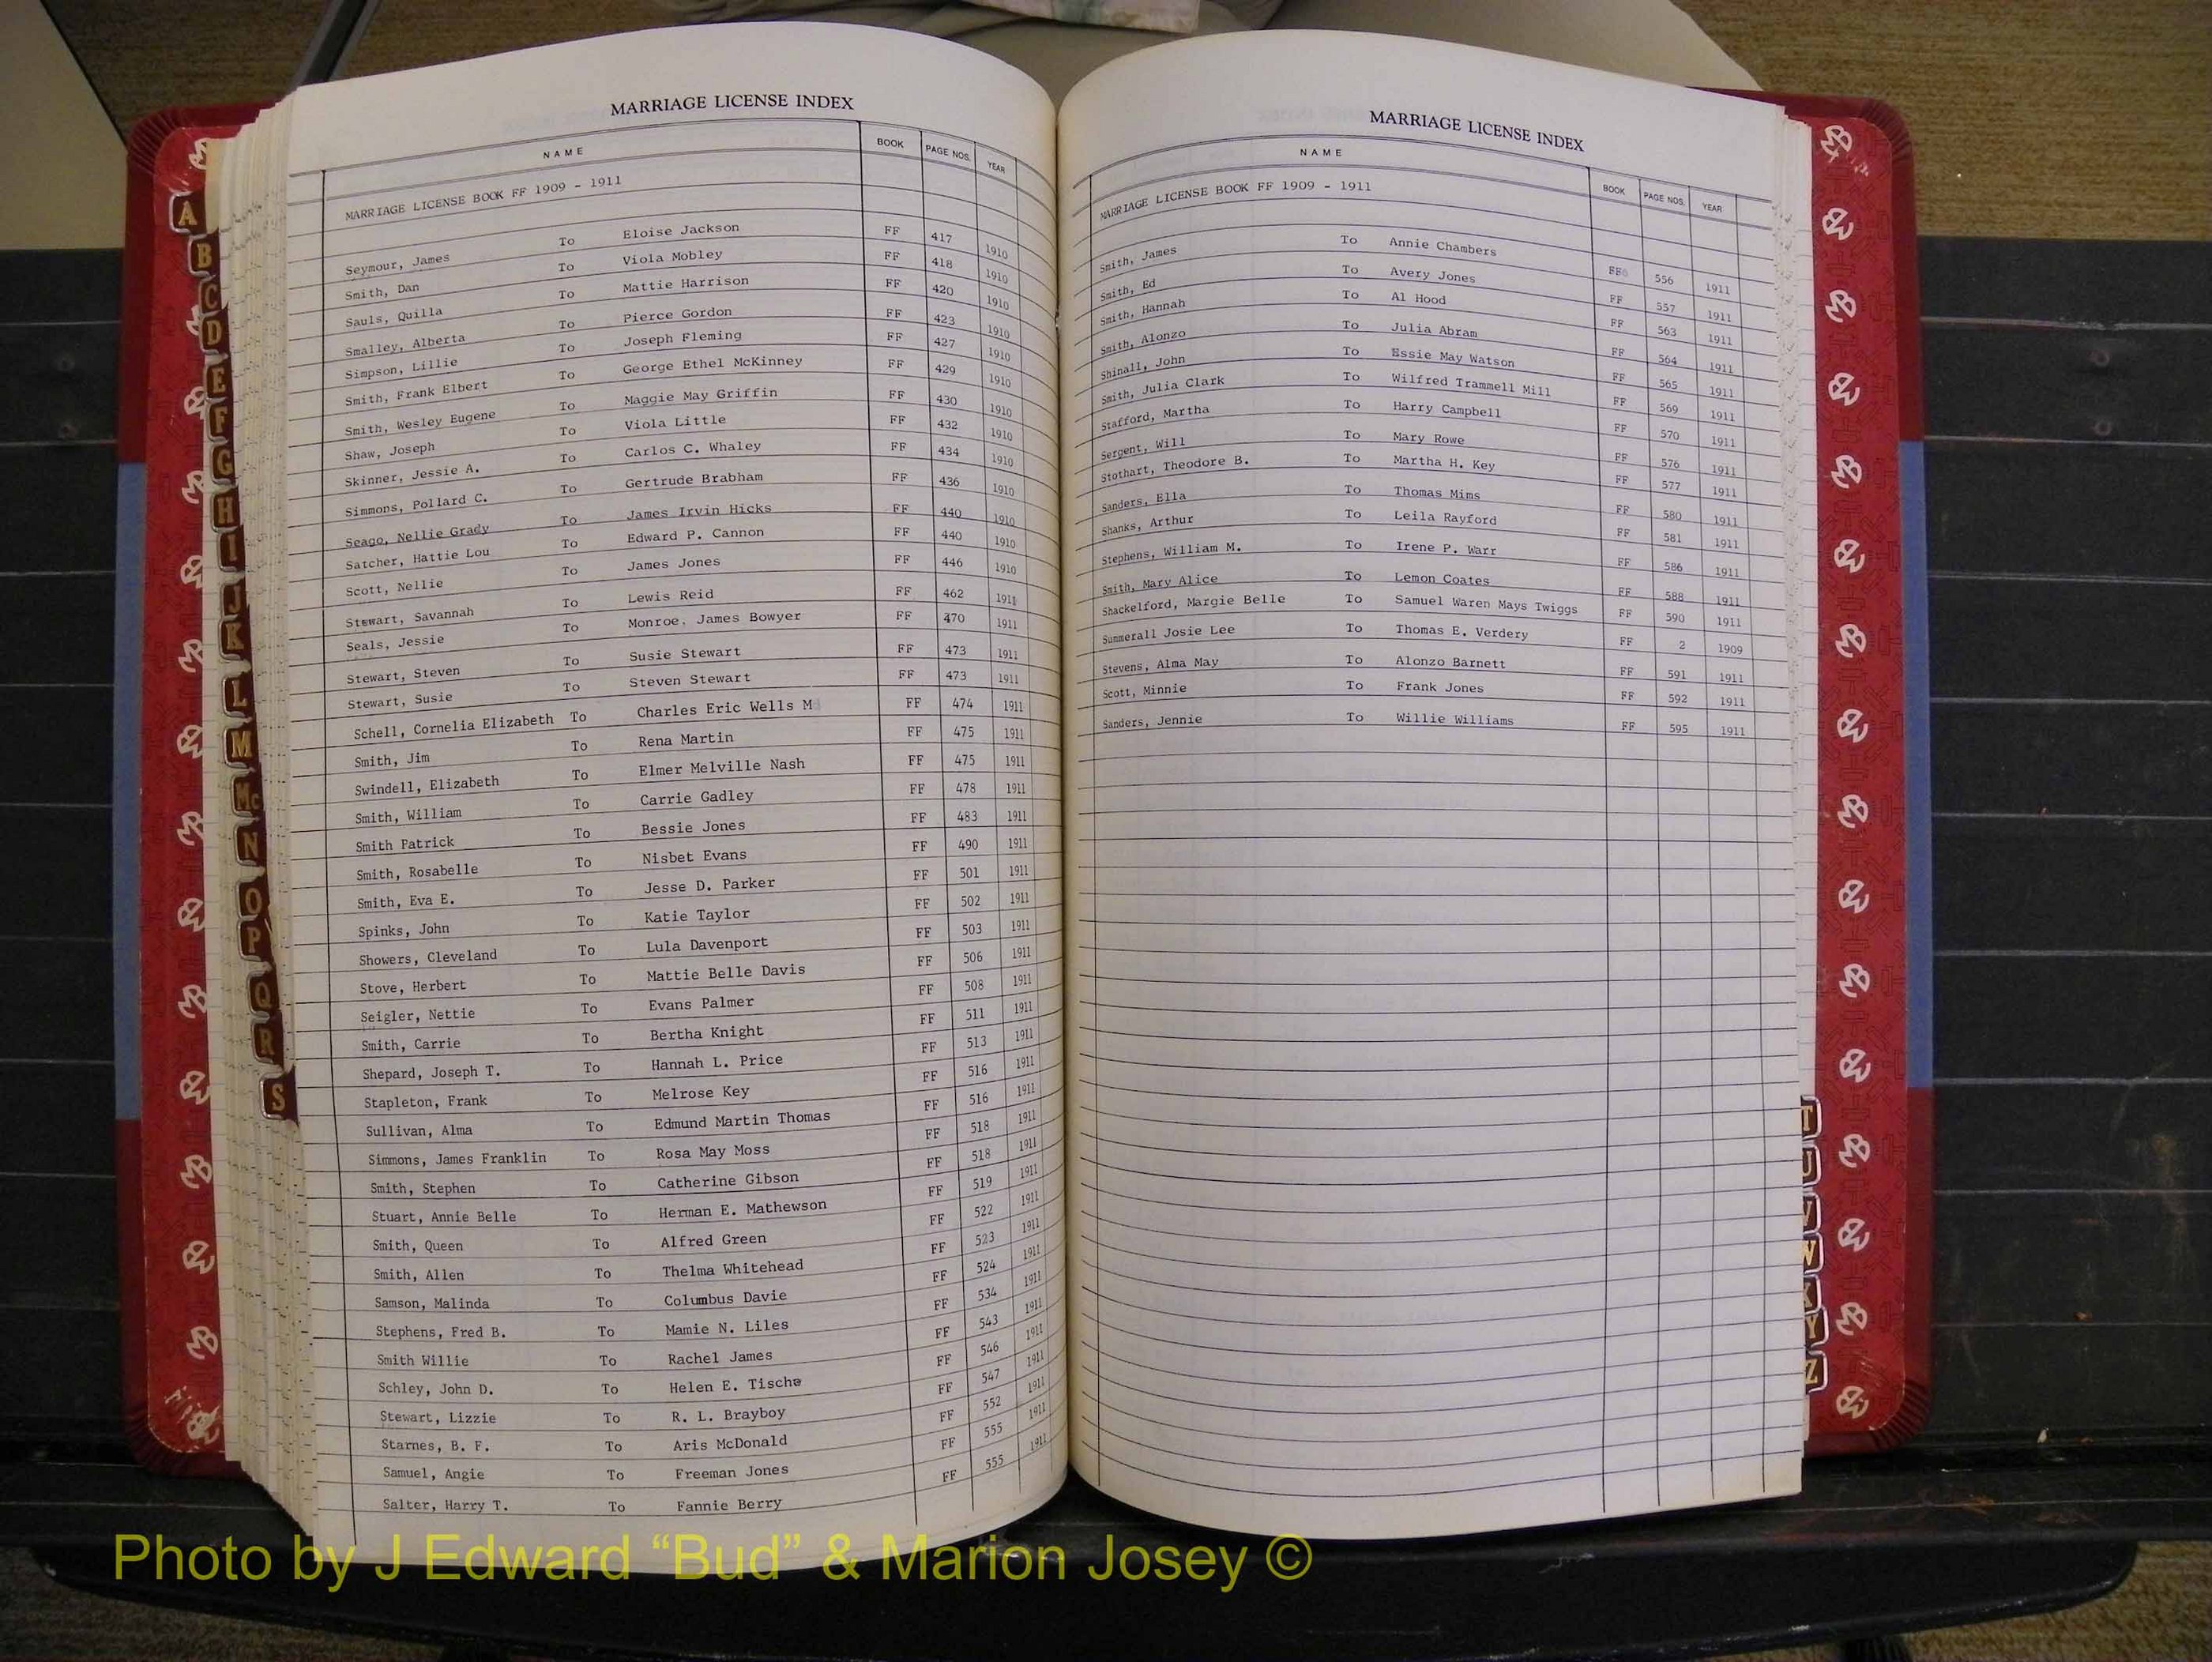 MARRIAGE LICENSE INDEX
NAME BOOK PAGE NOS. YEAR
MARRIAGE LICENSE BOOK FF 1909 - 1911
Seymour, James To Eloise Jackson FF 417 1910
Smith, Dan To Viola Mobley FF 418 1910
Sauls, Quilla To Mattie Harrison FF 420 1910
Smalley, Alberta To Pierce Gordon FF 423 1910
Simpson, Lillie To Joseph Fleming FF 427 1910
Smith, Frank Elbert To George Ethel McKinney FF 429 1910
Smith, Wesley Eugene To Maggie May Griffin FF 430 1910
Shaw, Joseph To Viola Little FF 432 1910
Skinner, Jessie A. To Carlos C. Whaley FF 434 1910
Simmons, Pollard C. To Gertrude Brabham FF 436 1910
Seago, Nellie Grady To James Irvin Hicks FF 440 1910
Satcher, Hattie Lou To Edward P. Cannon FF 440 1910
Scott, Nellie To James Jones FF 446 1910
Stewart, Savannah To Lewis Reid FF 462 1911
Seals, Jessie To Monroe, James Bowyer FF 470 1911
Stewart, Steven To Susie Stewart FF 473 1911
Stewart, Susie To Steven Stewart FF 473 1911
Schell, Cornelia Elizabeth To Charles Eric Wells M FF 474 1911
Smith, Jim To Rena Martin FF 475 1911
Swindell, Elizabeth To Elmer Melville Nash FF 475 1911
Smith, William To Carrie Gadley FF 478 1911
Smith Patrick To Bessie Jones FF 483 1911
Smith, Rosabelle To Nisbet Evans FF 490 1911
Smith, Eva E. To Jesse D. Parker FF 501 1911
Spinks, John To Katie Taylor FF 502 1911
Showers, Cleveland To Lula Davenport FF 503 1911
Stove, Herbert To Mattie Belle Davis FF 506 1911
Seigler, Nettie To Evans Palmer FF 508 1911
Smith, Carrie To Bertha Knight FF 511 1911
Shepard, Joseph T. To Hannah L. Price FF 513 1911
Stapleton, Frank To Melrose Key FF 516 1911
Sullivan, Alma To Edmund Martin Thomas FF 516 1911
Simmons, James Franklin To Rosa May Moss FF 518 1911
Smith, Stephen To Catherine Gibson FF 518 1911
Stuart, Annie Belle To Herman E. Mathewson FF 519 1911
Smith, Queen To Alfred Green FF 522 1911
Smith, Allen To Thelma Whitehead FF 523 1911
Samson, Malinda To Columbus Davie FF 524 1911
Stephens, Fred B. To Mamie N. Liles FF 534 1911
Smith Willie To Rachel James FF 543 1911
Schley, John D. To Helen E. Tische FF 546 1911
Stewart, Lizzie To R. L. Brayboy FF 547 1911
Starnes, B. F. To Aris McDonald FF 552 1911
Samuel, Angie To Freeman Jones FF 555 1911
Salter, Harry T. To Fannie Berry FF 555 1911
MARRIAGE LICENSE INDEX
NAME BOOK PAGE NOS. YEAR
MARRIAGE LICENSE BOOK FF 1909 - 1911
Smith, James To Annie Chambers FF 556 1911
Smith, Ed To Avery Jones FF 557 1911
Smith, Hannah To Al Hood FF 563 1911
Smith, Alonzo To Julia Abram FF 564 1911
Shinall, John To Essie May Watson FF 565 1911
Smith, Julia Clark To Wilfred Trammell Mill FF 569 1911
Stafford, Martha To Harry Campbell FF 570 1911
Sergent, Will To Mary Rowe FF 576 1911
Stothart, Theodore B. To Martha H. Key FF 577 1911
Sanders, Ella To Thomas Mims FF 580 1911
Shanks, Arthur To Leila Rayford FF 581 1911
Stephens, William M. To Irene P. Warr FF 586 1911
Smith, Mary Alice To Lemon Coates FF 588 1911
Shackelford, Margie Belle To Samuel Waren Mays Twiggs FF 590 1911
Summerall Josie Lee To Thomas E. Verdery FF 2 1909
Stevens, Alma May To Alonzo Barnett FF 591 1911
Scott, Minnie To Frank Jones FF 592 1911
Sanders, Jennie To Willie Williams FF 595 1911
A
B
C
D
E
F
G
H
I
J
K
L
M
Mc
N
O
P
Q
R
S
T
U
V
W
X
Y
Z
Photo by J Edward “Bud” & Marion Josey ©